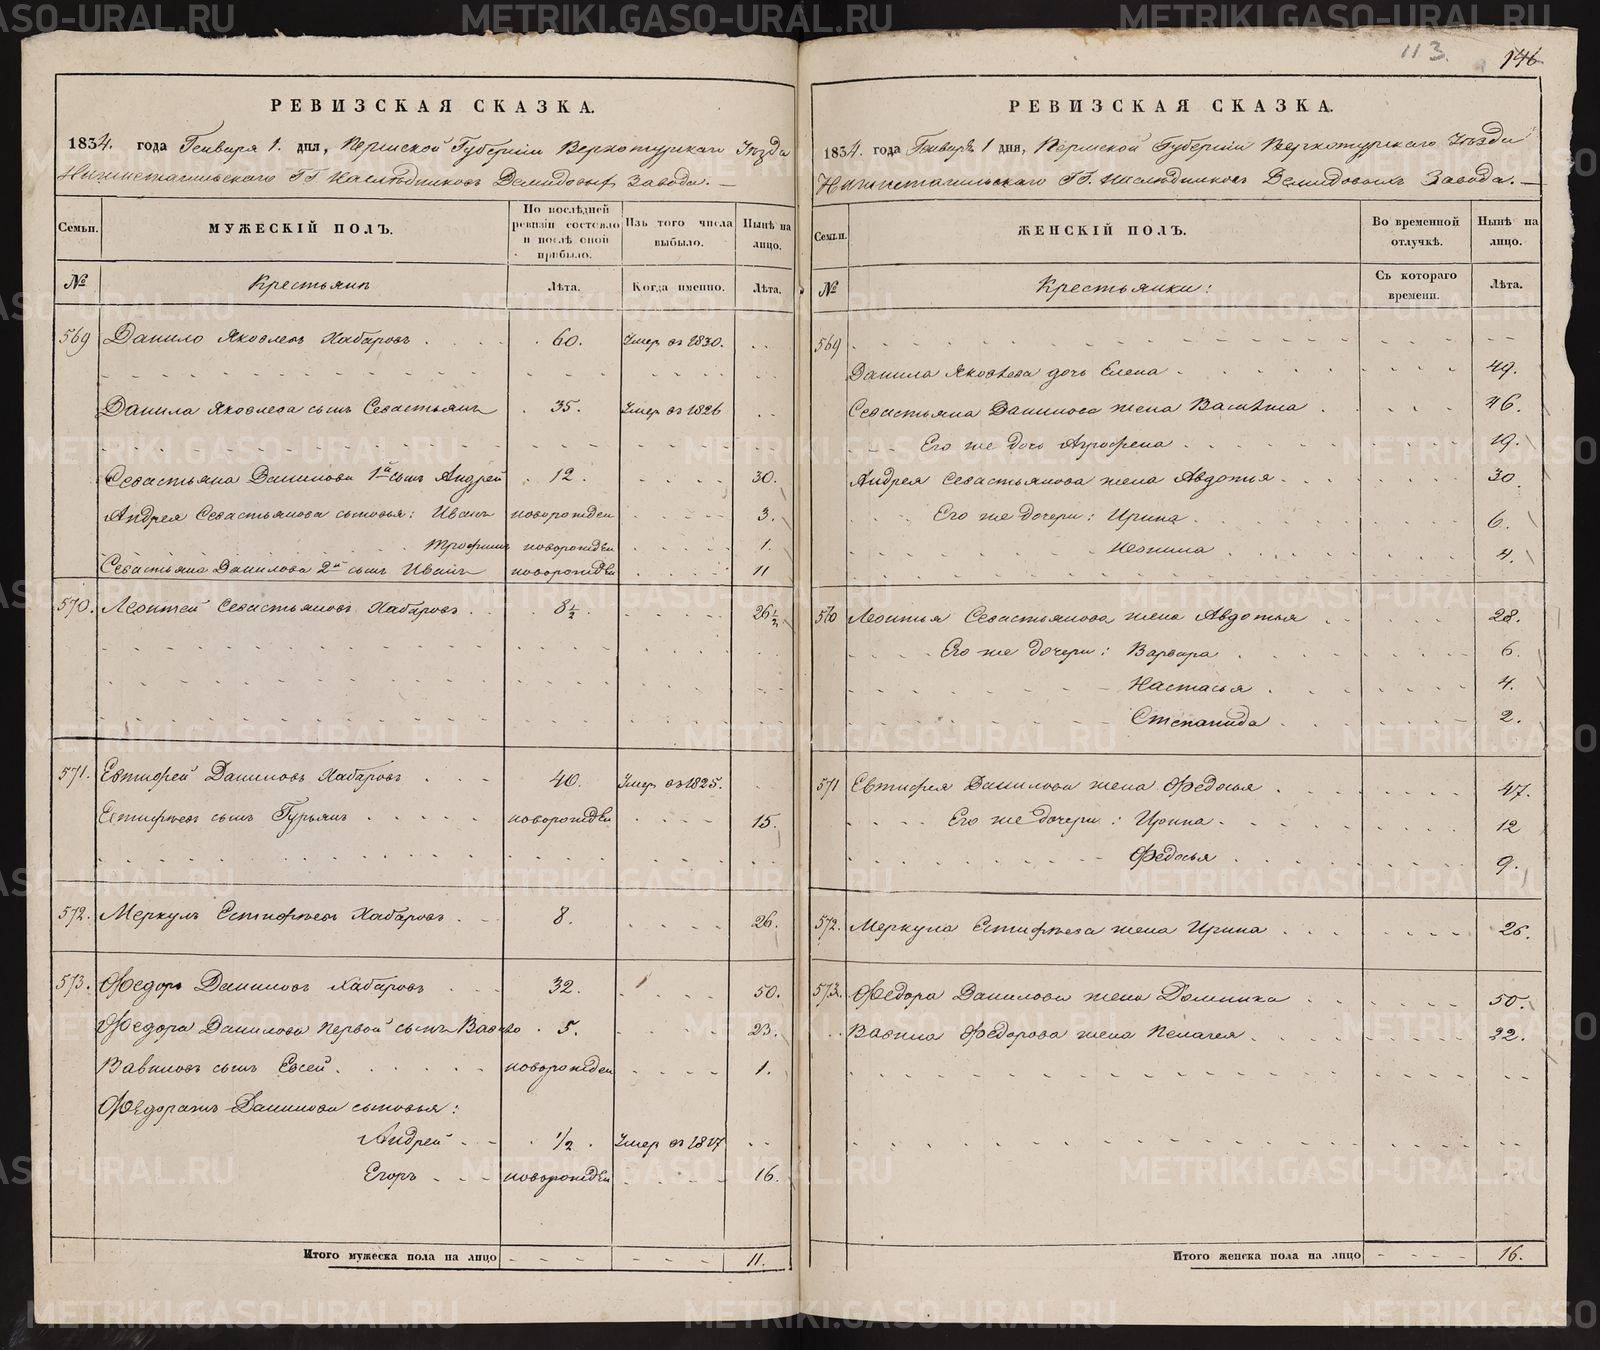 113.
146
РЕВИЗСКАЯ СКАЗКА.
1834. года Генваря 1. дня, Пермской Губернии Верхотурскаго Уезда
Нижнетагильскаго ГГ. Наследниковъ Демидовых Завода. —
Семьи.
МУЖЕСКІЙ ПОЛЪ.
По послѣдней ревизіи состояло и послѣ оной прибыло.
Изъ того числа выбыло.
Нынѣ на лицо.
№
Крестьянъ
Лѣта.
Когда именно.
Лѣта.
569 Данило Яковлевъ Хабаровъ 60. Умер въ 1830.
Данила Яковлева сынъ Севастьянъ 35. Умер въ 1826
Севастьяна Данилова 1й сынъ Андрей 12. 30.
Андрея Севастьянова сыновья: Иванъ новорожден 3.
Трофимъ новорожден 1.
Севастьяна Данилова 2й сынъ Иванъ новорожден 11
570. Леонтей Севастьяновъ Хабаровъ 8½ 26½
571. Евтифей Даниловъ Хабаровъ 40. Умер въ 1825.
Естифѣевъ сынъ Гурьянъ новорожден 15.
572. Меркулъ Естифѣевъ Хабаровъ 8. 26.
573. Федоръ Даниловъ Хабаровъ 32. 50.
Федора Данилова первой сынъ Вавило 5. 23.
Вавиловъ сынъ Евсей новорожден 1.
Данилова сыновья:
Андрей 1/2 Умер въ 1817
Егоръ новорожден 16.
Итого мужеска пола на лицо 11.
РЕВИЗСКАЯ СКАЗКА.
1834. года Генваря 1 дня, Пермской Губернии Верхотурскаго Уезда
Нижнетагильскаго ГГ. Наследниковъ Демидовыхъ Завода. —
Семьи.
ЖЕНСКІЙ ПОЛЪ.
Во временной отлучкѣ.
Нынѣ на лицо.
№
Крестьянки:
Съ котораго времени.
Лѣта.
569
Данила Яковлева дочь Елена 49.
Севастьяна Данилова жена Василиса 46.
Его же дочь Агрофена 19.
Андрея Севастьянова жена Авдотья 30.
Его же дочери: Ирина 6.
Неонила 4.
570 Леонтья Севастьянова жена Авдотья 28.
Его же дочери: Варвара 6.
Настасья 4.
Степанида 2.
571 Евтифея Данилова жена Федосья 47.
Его же дочери: Ирина 12
Федосья 9.
572. Меркула Естифѣева жена Ирина 26.
573. Федора Данилова жена Домника 50.
Вавила Федорова жена Пелагея 22.
Итого женска пола на лицо 16.
METRIKI.GASO-URAL.RU